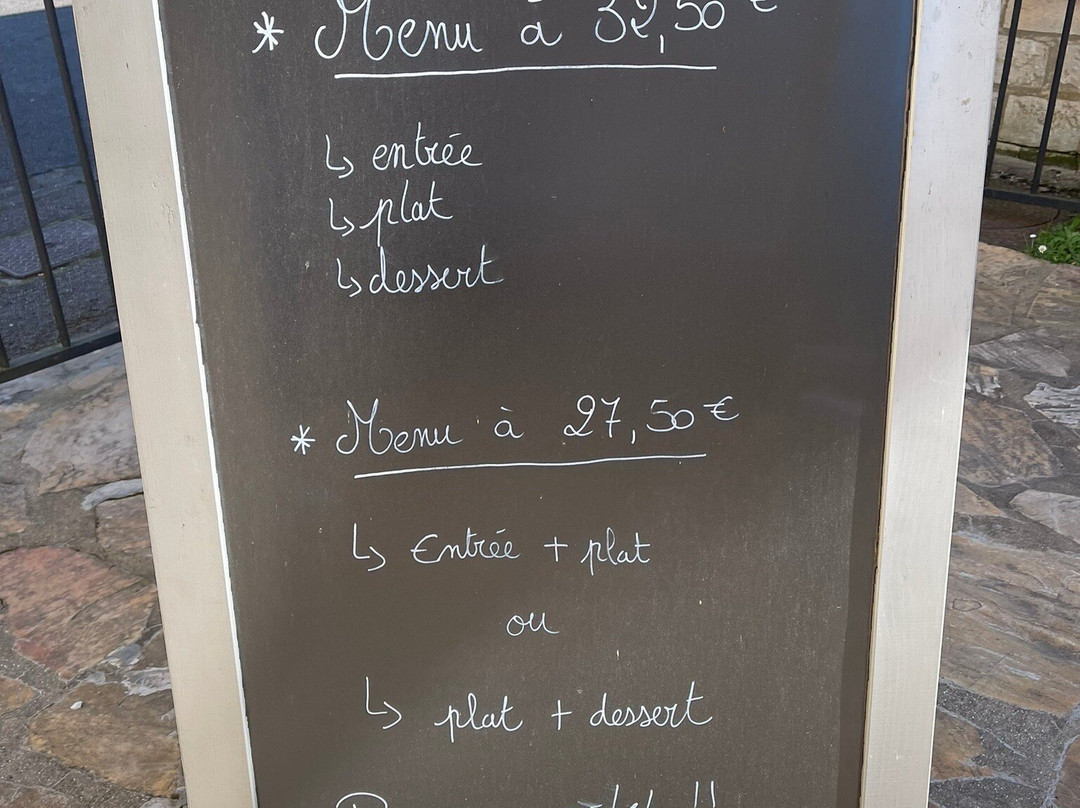 * Menu à 32,50 €
↳ entrée
↳ plat
↳ dessert
* Menu à 27,50 €
↳ Entrée + plat
ou
↳ plat + dessert